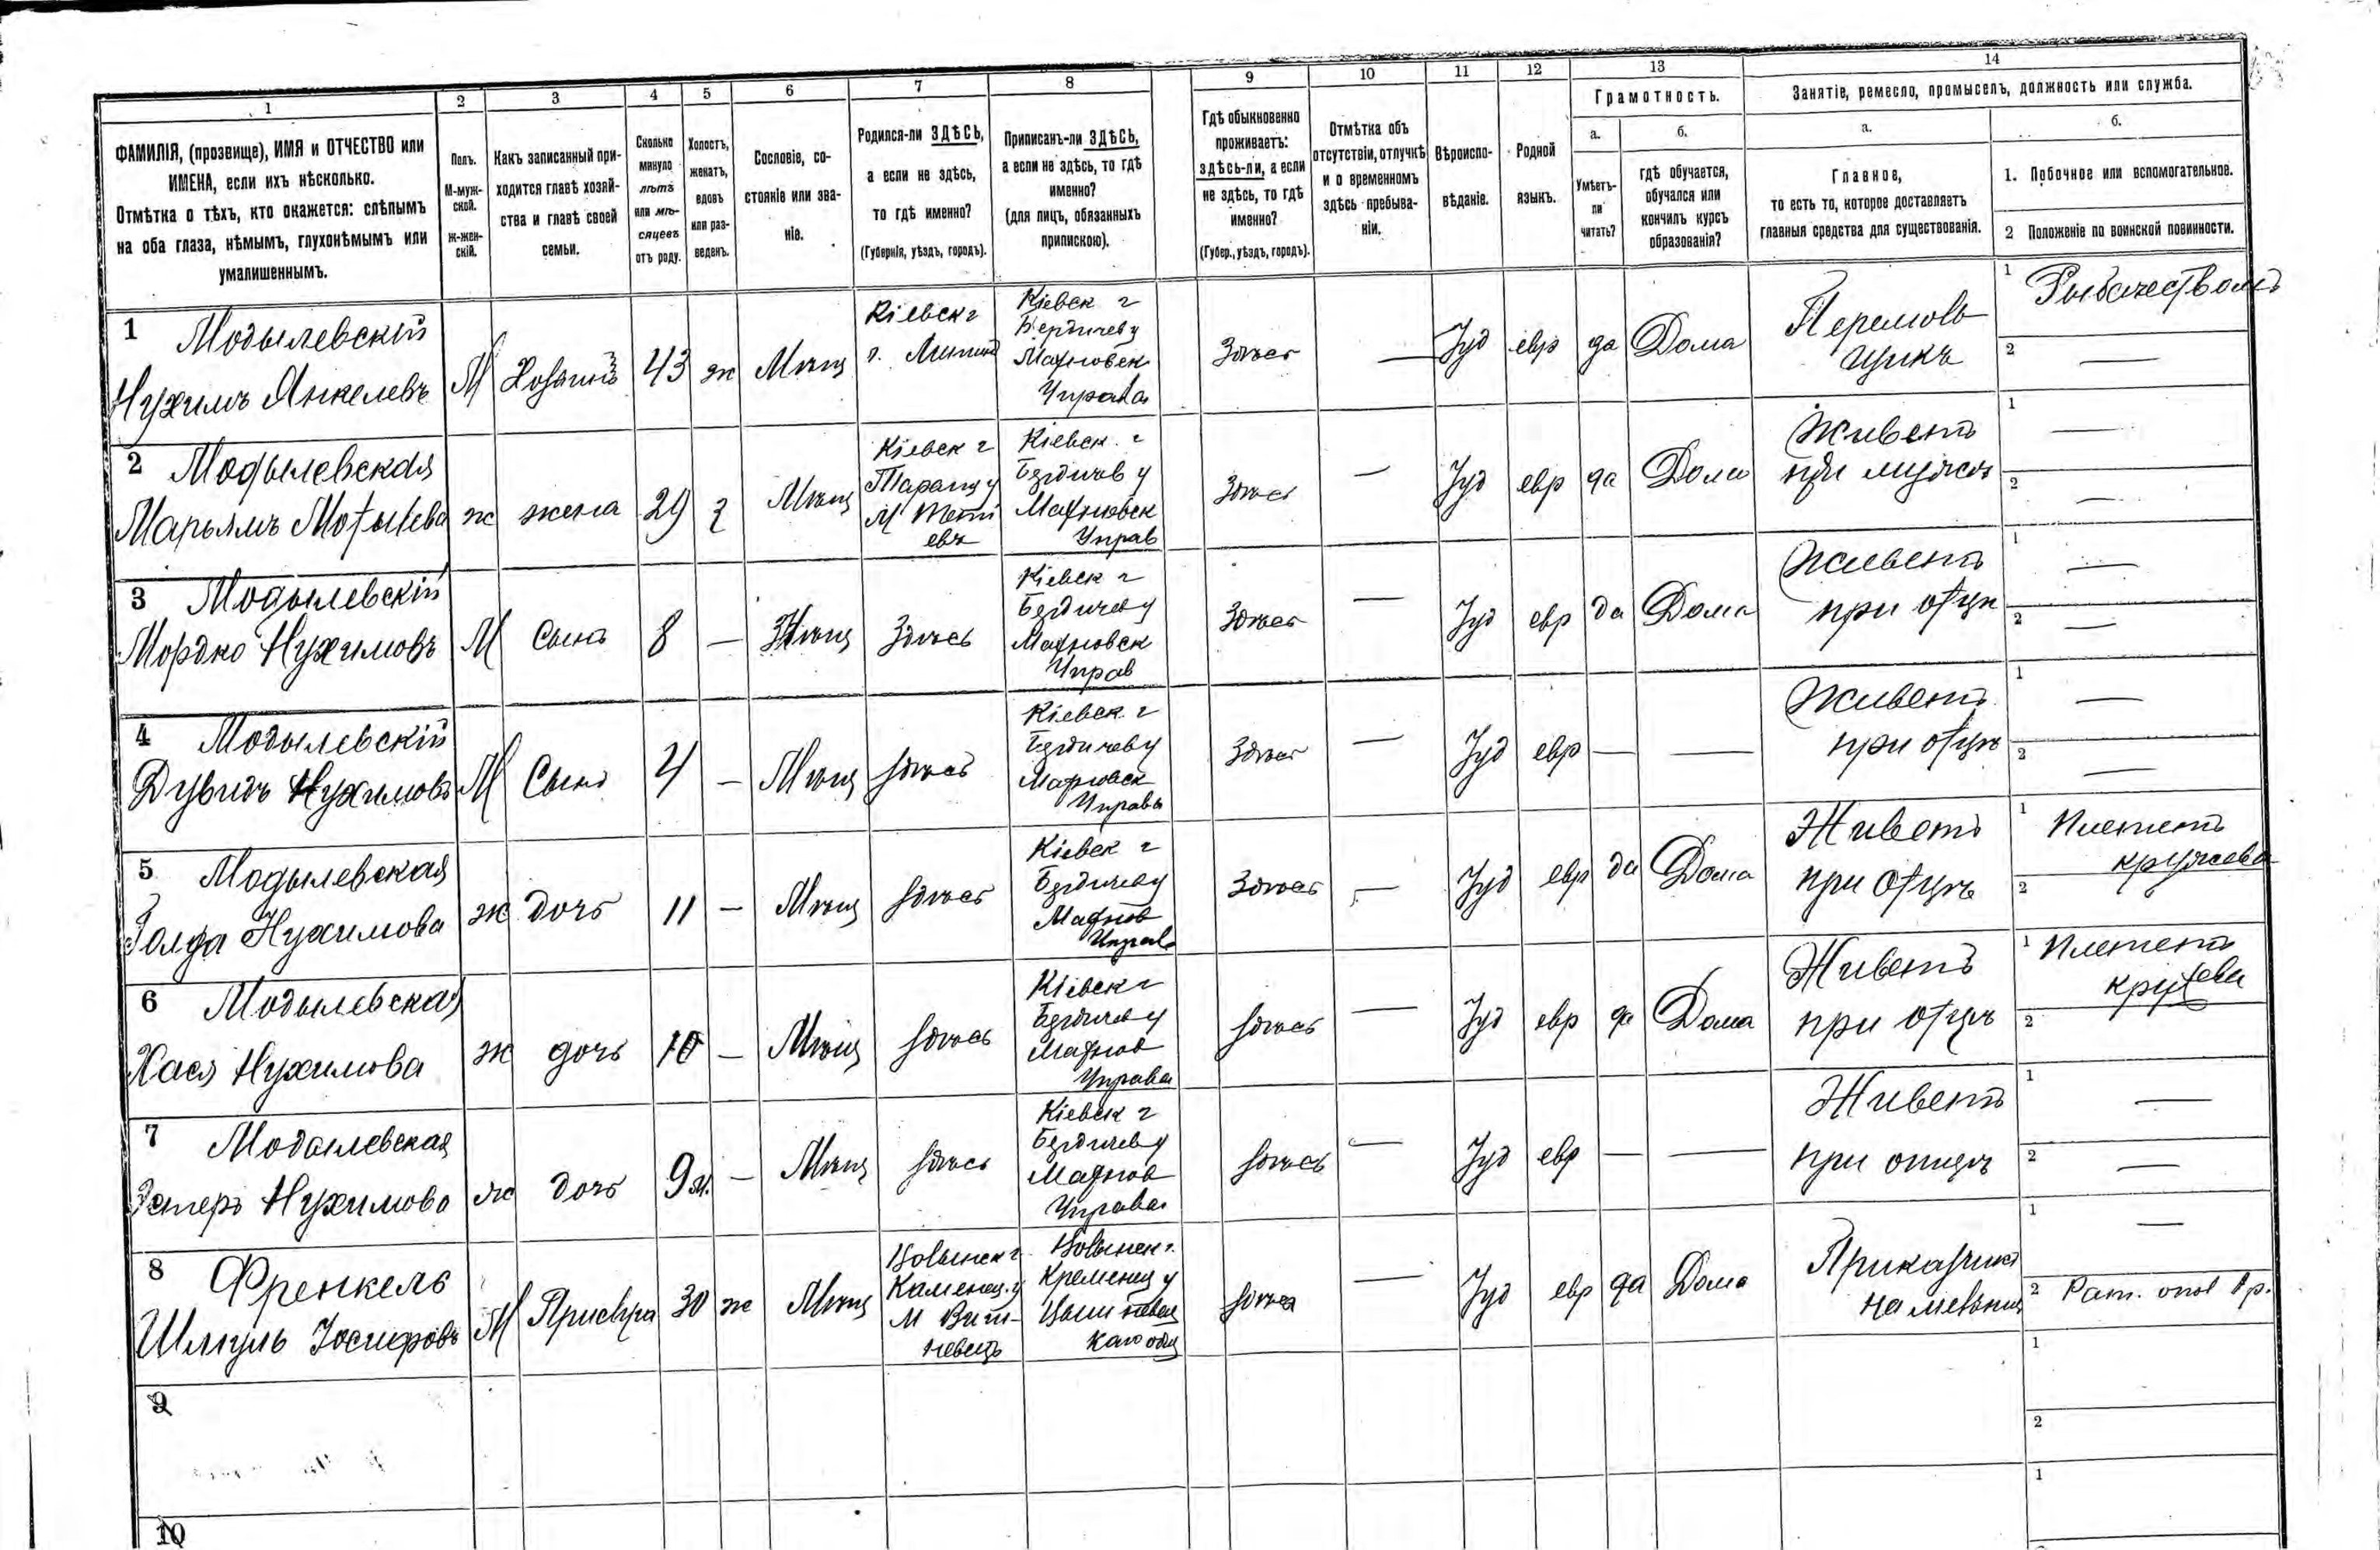 1 2 3 4 5 6 7 8 9 10 11 12 13 14
ФАМИЛІЯ, (прозвище), ИМЯ и ОТЧЕСТВО или
ИМЕНА, если ихъ нѣсколько.
Отмѣтка о тѣхъ, кто окажется: слѣпымъ
на оба глаза, нѣмымъ, глухонѣмымъ или
умалишеннымъ.
Полъ.
М-муж-
ской.
ж-жен-
скій.
Какъ записанный при-
ходится главѣ хозяй-
ства и главѣ своей
семьи.
Сколько
минуло
лѣтъ
или мѣ-
сяцевъ
отъ роду.
Холостъ,
женатъ,
вдовъ
или раз-
веденъ.
Сословіе, со-
стояніе или зва-
ніе.
Родился-ли ЗДѢСЬ,
а если не здѣсь,
то гдѣ именно?
(Губернія, уѣздъ, городъ).
Приписанъ-ли ЗДѢСЬ,
а если не здѣсь, то гдѣ
именно?
(для лицъ, обязанныхъ
припискою).
Гдѣ обыкновенно
проживаетъ:
здѣсь-ли, а если
не здѣсь, то гдѣ
именно?
(Губер., уѣздъ, городъ).
Отмѣтка объ
отсутствіи, отлучкѣ
и о временномъ
здѣсь пребыва-
ніи.
Вѣроиспо-
вѣданіе.
Родной
языкъ.
Грамотность.
а.
Умѣетъ-
ли
читать?
б.
гдѣ обучается,
обучался или
кончилъ курсъ
образованія?
Занятіе, ремесло, промыселъ, должность или служба.
а.
Главное,
то есть то, которое доставляетъ
главныя средства для существованія.
б.
1. Побочное или вспомогательное.
2 Положеніе по воинской повинности.
1 Модылевскій
Нухимъ Янкелевъ
М
Хозяинъ
43
ж
Мѣщ
Кіевск г
Кіевск г
Бердичев у
Махновск
Управа
Здѣсь
—
Іуд
евр
да
Дома
1
2 —
2 Модылевская
Марьямъ
ж
жена
29
Мѣщ
Кіевск г
Таращ у
м Тети
евъ
Кіевск. г
Бердичев у
Махновск
Управ
Здѣсь
—
Іуд
евр
да
Дома
Живетъ
при мужѣ
1 —
2 —
3 Модылевскій
Мордко Нухимовъ
М
Сынъ
8
—
Мѣщ
Здѣсь
Кіевск г
Бердичев у
Махновск
Управ
Здѣсь
—
Іуд
евр
да
Дома
Живетъ
при отцѣ
1 —
2 —
4 Модылевскій
Дувидъ Нухимовъ
М
Сынъ
4
—
Мѣщ
здѣсь
Кіевск г
Бердичев у
Махновск
Управа
Здѣсь
—
Іуд
евр
—
—
Живетъ
при отцѣ
1 —
2 —
5 Модылевская
Голда Нухимова
ж
дочь
11
—
Мѣщ
здѣсь
Кіевск г
Бердичев у
Махнов
Управа
Здѣсь
—
Іуд
евр
да
Дома
Живетъ
при отцѣ
1 Плететъ
кружева
2
6 Модылевская
Хася Нухимова
ж
дочь
10
—
Мѣщ
здѣсь
Кіевск г
Бердичев у
Махнов
Управа
здѣсь
—
Іуд
евр
да
Дома
Живетъ
при отцѣ
1 Плететъ
кружева
2
7 Модылевская
Эстеръ Нухимова
ж
дочь
9 м.
—
Мѣщ
здѣсь
Кіевск г
Бердичев у
Махнов
Управа
здѣсь
—
Іуд
евр
—
—
Живетъ
при отцѣ
1 —
2 —
8 Френкель
Шмуль Іосифовъ
М
Прислуга
30
ж
Мѣщ
Волынск г.
м Виш-
невецъ
Волынск г.
Кременец у
здѣсь
—
Іуд
евр
да
Дома
Приказчикъ
1 —
2 Рат.
9
1
2
10
1